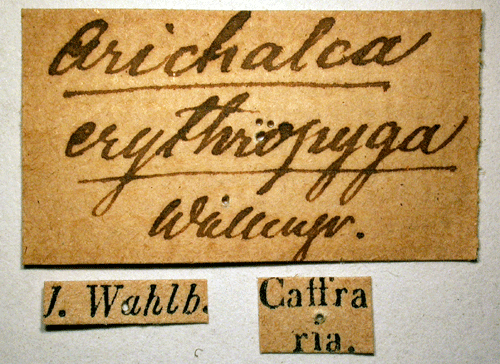 Arichalca
erythropyga
Wallengr.
J. Wahlb.
Caffra
ria.